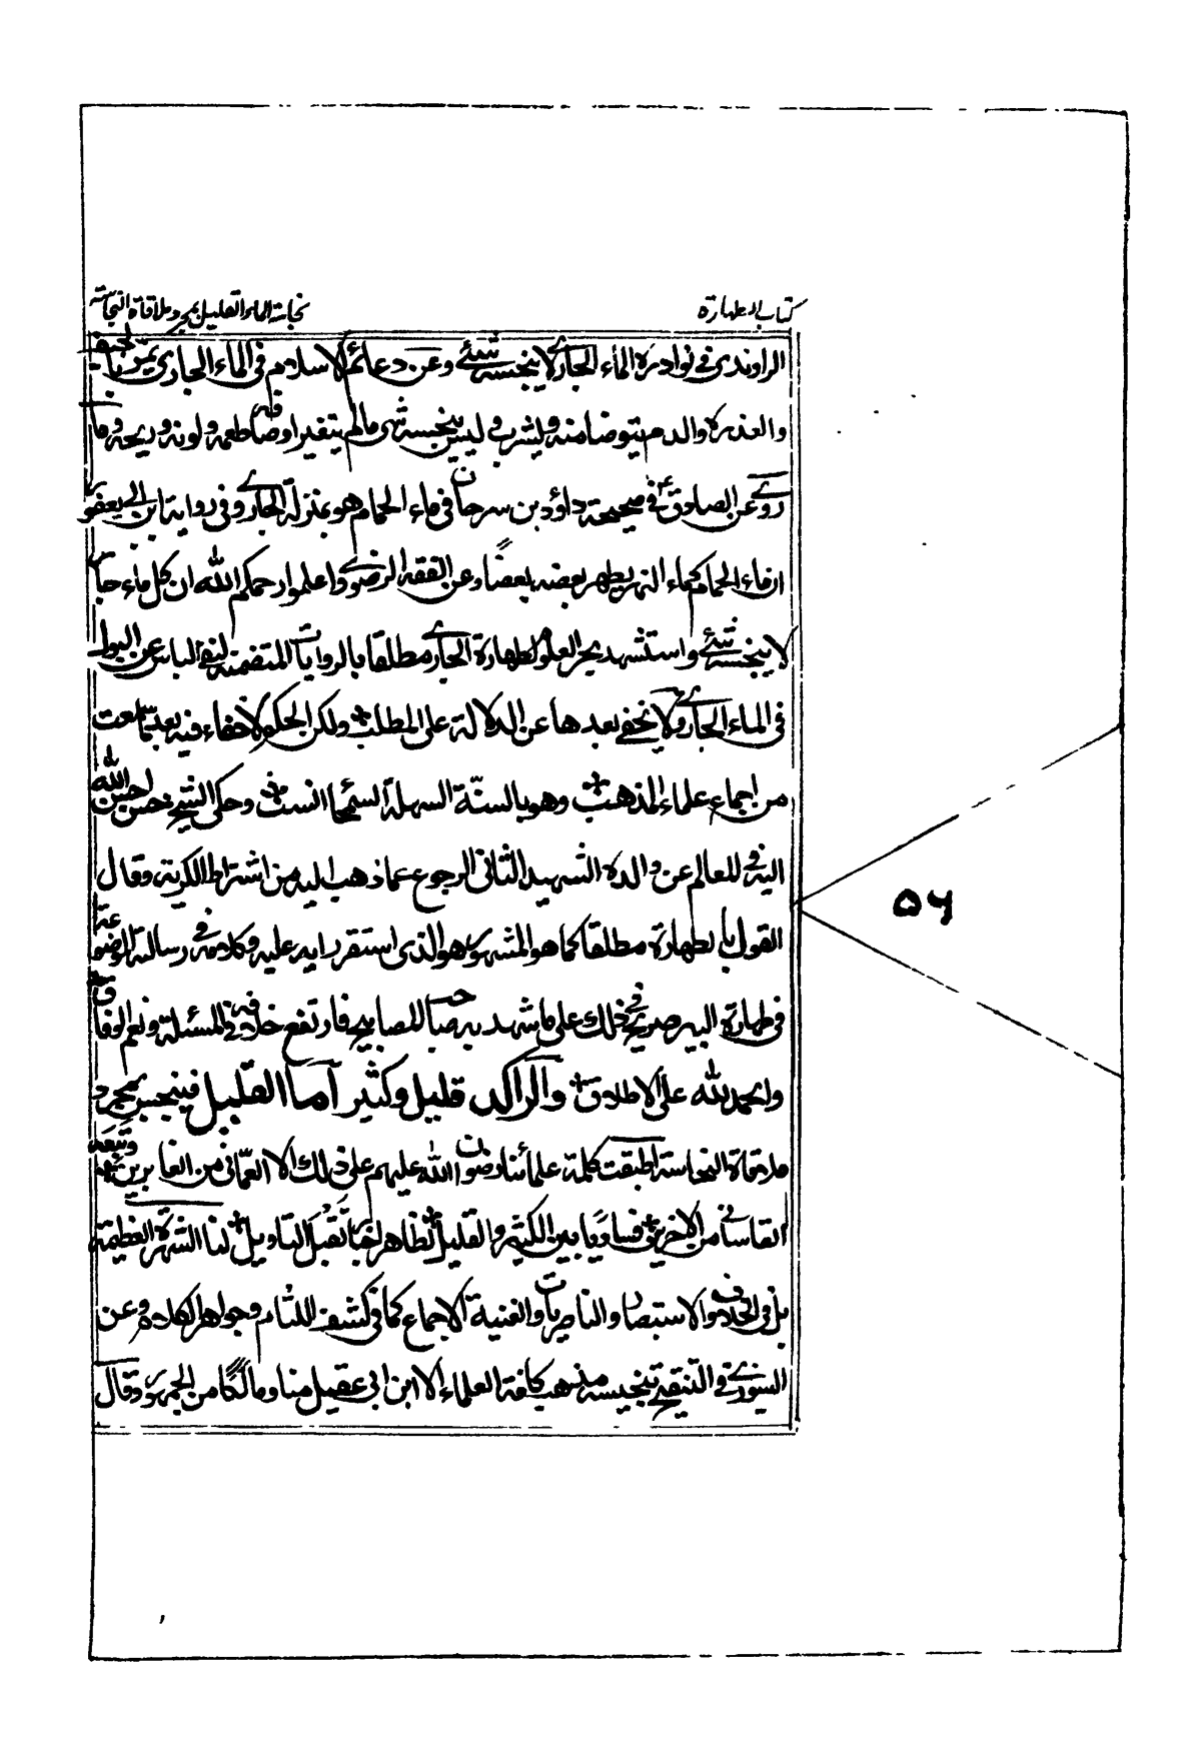 كتاب الطهارة
نجاسة الماء القليل بمجرد ملاقاة النجاسة
الراوندي في نوادره الماء الجاري لا ينجسه شئ وعن دعائم الاسلام في الماء الجاري يمر بالجيف
والعذرة والدم يتوضا منه ويشرب وليس ينجسه شئ ما لم يتغير اوصافه طعمه ولونه وريحه وما
روي عن الصادق ع في صحيحة داؤد بن سرحان في ماء الحمام هو بمنزلة الجاري وفي رواية ابن ابي يعفور
ان ماء الحمام كماء النهر يطهر بعضه بعضا وعن الفقه الرضوي واعلموا رحمكم الله ان كل ماء جار
لا ينجسه شئ واستشهد بحر العلوم لطهارة الجاري مطلقا بالروايات المتضمنة لنفي الباس عن البول
في الماء الجاري ولا يخفى بعدها عن الدلالة على المطلب ولكن الحكم لا خفاء فيه بعد ما سمعت
من اجماع علماء المذهب وهو بالسنة السهلة السمحا انسب وحكى الشيخ حسن احسن الله
اليه في المعالم عن والده الشهيد الثاني الرجوع عما ذهب اليه من اشتراط الكرية وقال
القول بالطهارة مطلقا كما هو المشهور هو الذي استقر رايه عليه وكلامه في رسالته الموضوعة
في طهارة البير صريح في ذلك على ما شهد به صاحب المصابيح فارتفع خلافه في المسئلة ونعم الوفاق
والحمد لله على الاطلاق والراكد قليل وكثير اما القليل فينجس بمجرد
ملاقاة النجاسة اطبقت كلمة علمائنا رضوان الله عليهم على ذلك الا العماني من الغابرين وتبعه
القاساني من الاخرين فساويا بين الكثير والقليل لظاهر اخبار تقبل التاويل لنا الشهرة العظيمة
بل في الخلاف والاستبصار والناصريات والغنية الاجماع كما في كشف اللثام وجواهر الكلام وعن
السيوري في التنقيح تنجيسه مذهب كافة العلماء الا ابن ابي عقيل منا ومالكا من الجمهور وقال
٥٦